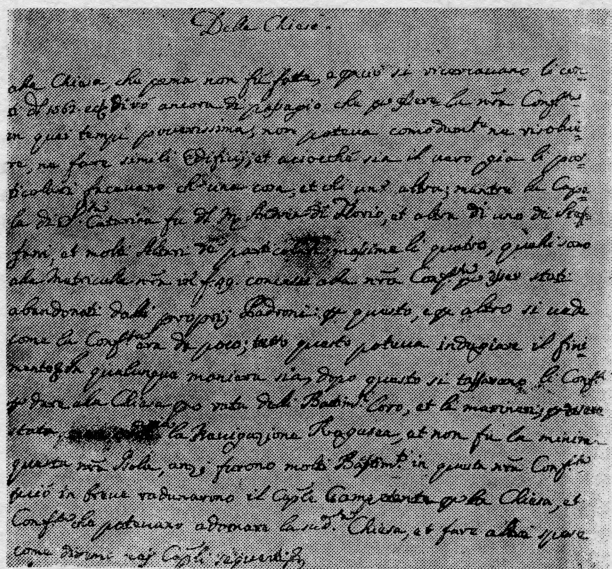 Delle Chiese.
alla Chiesa, che prima non fù fatta, e perciò si ricercavano li cor
di ancora di passagio che per essere la nrã Confrna
in quei tempi poverissima, non poteva comodamte ne risolve
re, ne fare simili Edificij; et acciocché sia il vero già li par
ticolari facevano chi una cosa, et chi unã altra; mentre la Cape
la di Sta Catterina fu di Andrea di Florio, et altra di uno de Stef
fani, et molti Altari particolari masime li quatro, quali sono
alla Matricula nrã conceduti alla nrã stati
abandonati dalli proprij Padroni: questo, altro si vede
come la era da poco; tutto questo poteva indugiare il fini
mento in qualunque maniera sia, dopo questo si tassarono li
dare alla Chiesa pro rata delli Bastimti loro, et li marinari,
stata, la Navigazione Ragusea, et non fu la minima
questa nrã Isola, anzi furono molti Bastimti in questa nrã
perciò in breve radunarono il Caple Competente la Chiesa, et
potevano adornare la sudta Chiesa, et fare altre spese
come diremo nej Capli seguenti